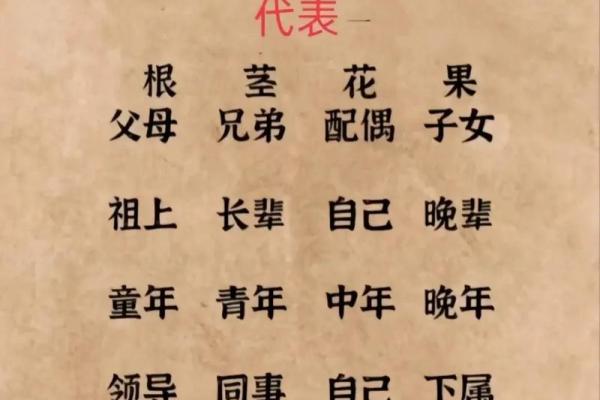 代表
根 茎 花 果
父母 兄弟 配偶 子女
祖上 长辈 自己 晚辈
童年 青年 中年 晚年
领导 同事 自己 下属